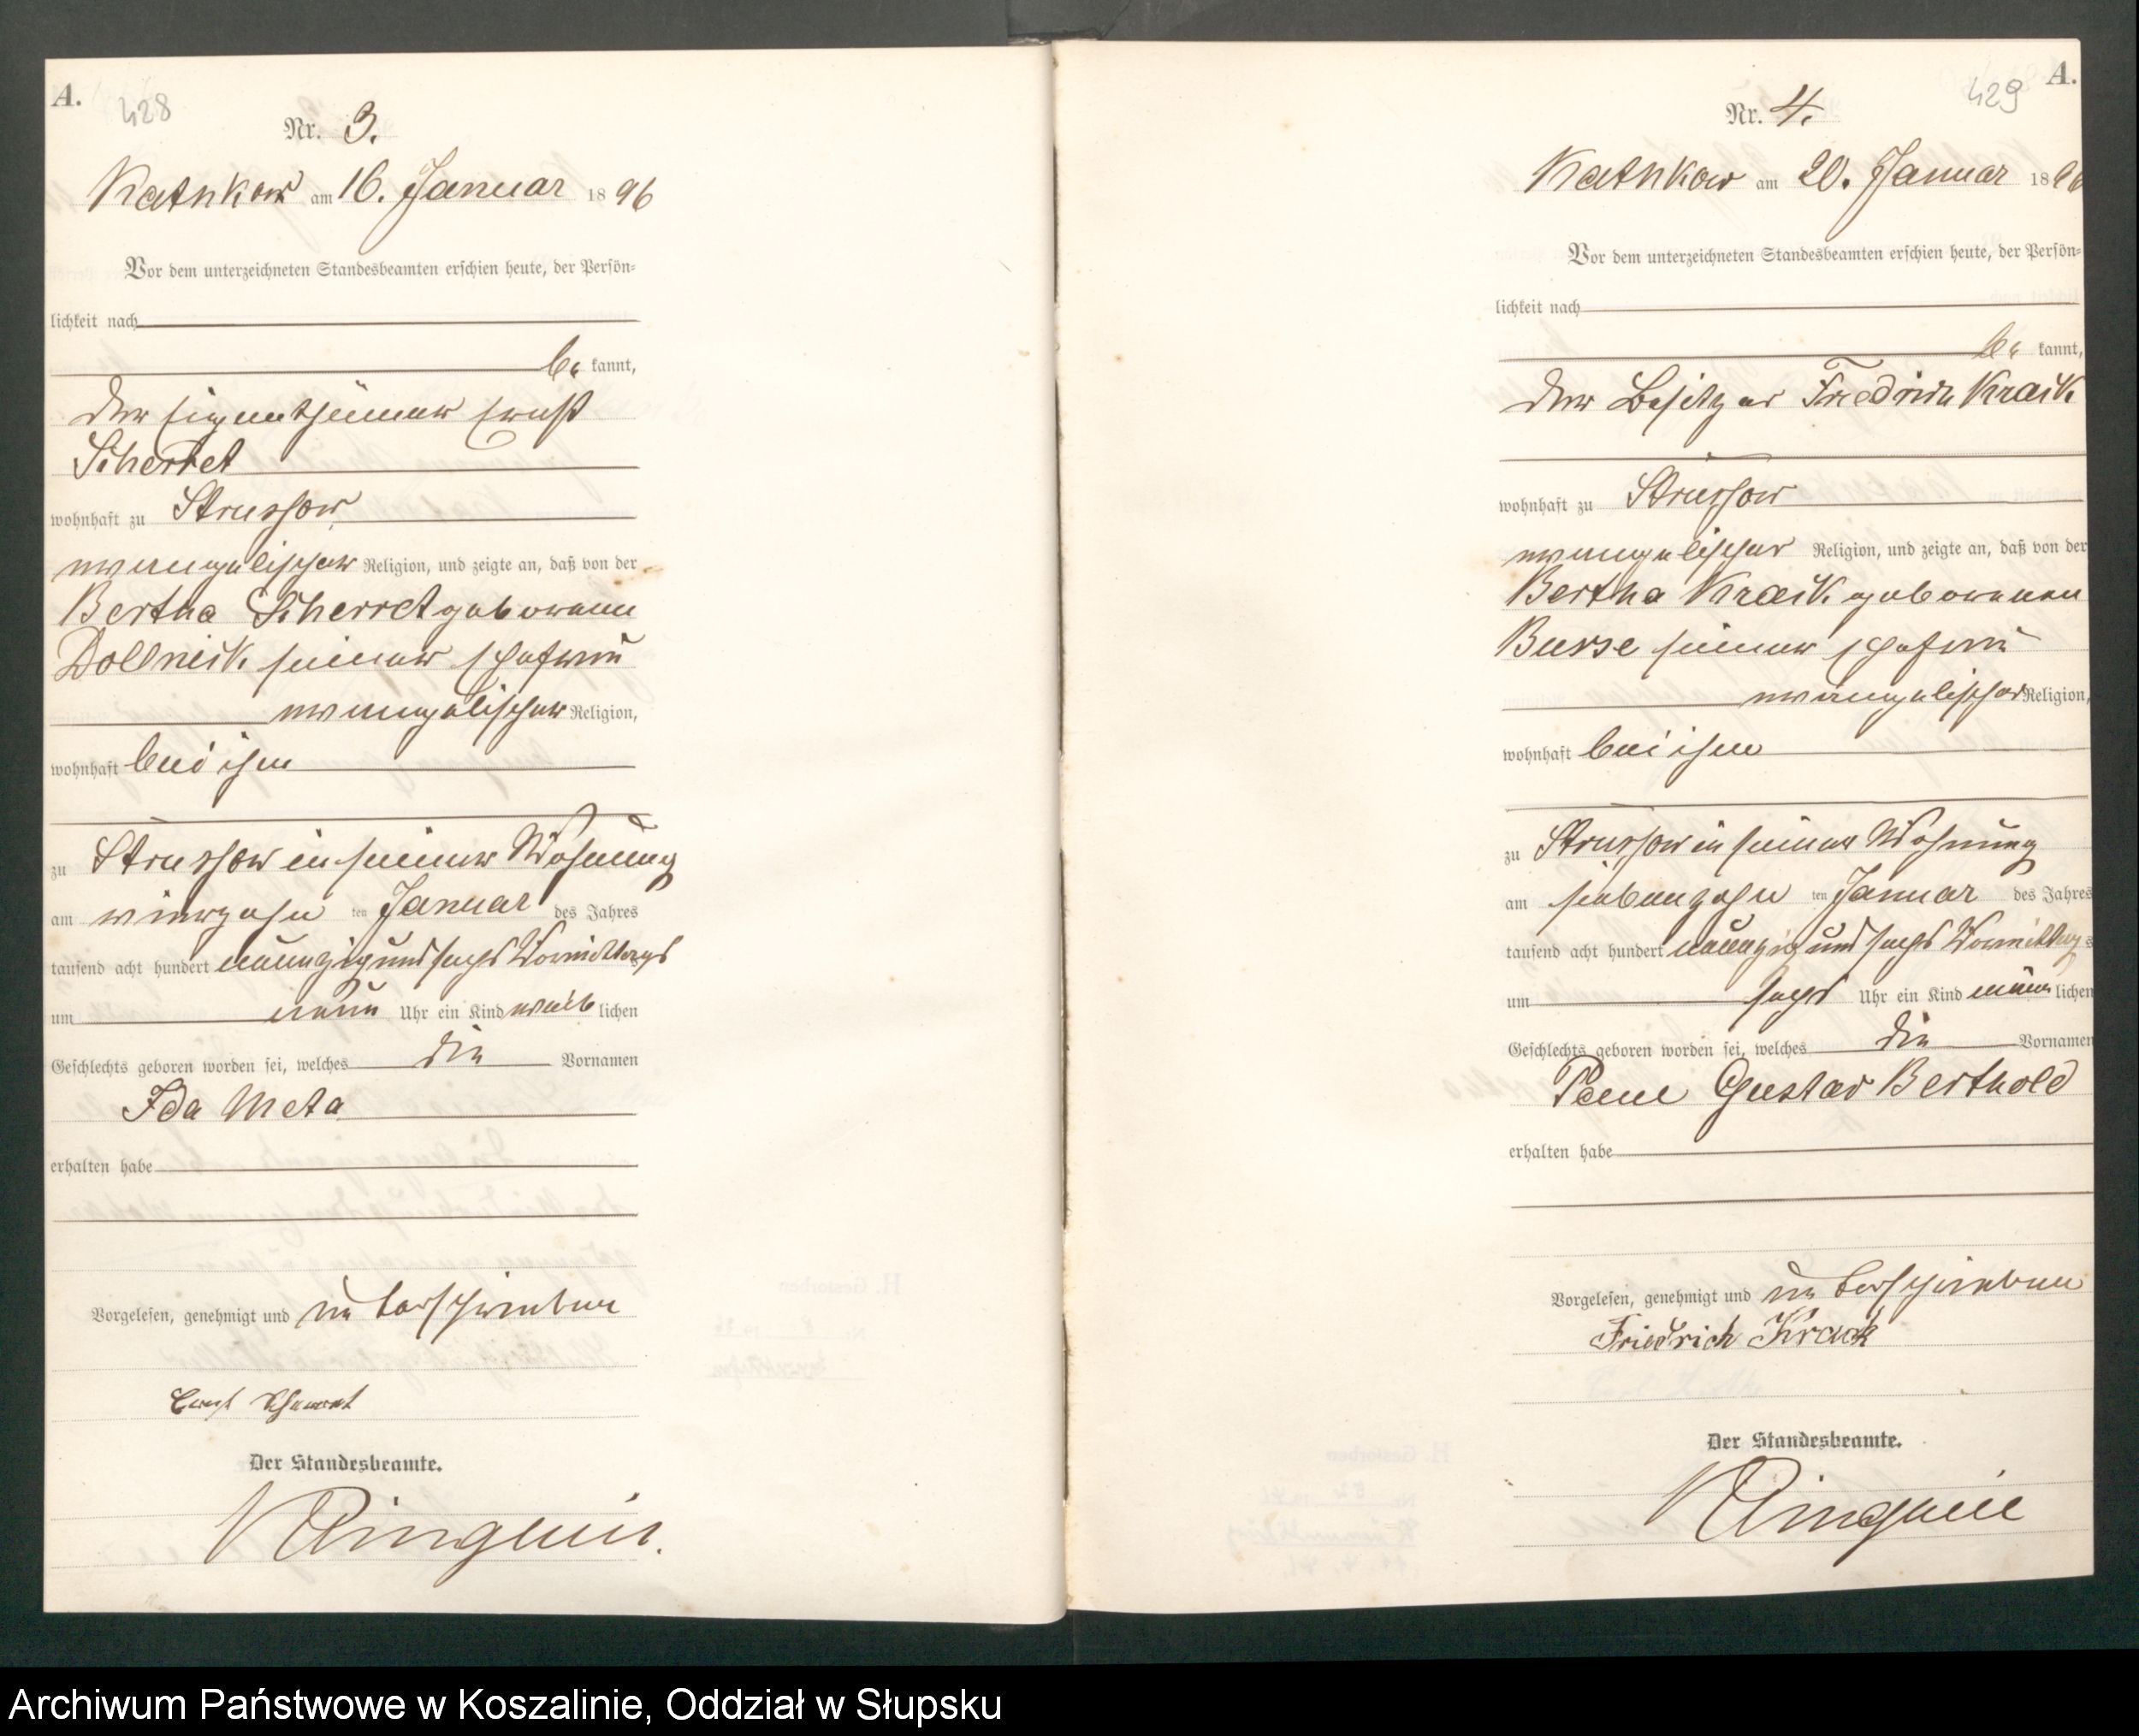 A.
428
Nr. 3.
Kathkow am 16. Januar 1896
Vor dem unterzeichneten Standesbeamten erschien heute, der Persön-
lichkeit nach
be kannt,
der Eigenthümer Ernst
Scherret
wohnhaft zu Strussow
evangelischer Religion, und zeigte an, daß von der
Bertha Scherret geborenen
Dollneck seiner Ehefrau
evangelischer Religion,
wohnhaft bei ihm
zu Strussow in seiner Wohnung
am vierzehn ten Januar des Jahres
tausend acht hundert neunzig und sechs Vormittags
um neun Uhr ein Kind weib lichen
Geschlechts geboren worden sei, welches die Vornamen
Ida Meta
erhalten habe
Vorgelesen, genehmigt und unterschrieben
Ernst Scherret
Der Standesbeamte.
A.
429
Nr. 4.
Kathkow am 20. Januar 1896
Vor dem unterzeichneten Standesbeamten erschien heute, der Persön-
lichkeit nach
be kannt,
der Besitzer Friedrich Krack
wohnhaft zu Strussow
evangelischer Religion, und zeigte an, daß von der
Bertha Krack geborenen
Busse seiner Ehefrau
evangelischer Religion,
wohnhaft bei ihm
zu Strussow in seiner Wohnung
am siebenzehn ten Januar des Jahres
tausend acht hundert neunzig und sechs Vormittags
um sechs Uhr ein Kind männ lichen
Geschlechts geboren worden sei, welches die Vornamen
Paul Gustav Berthold
erhalten habe
Vorgelesen, genehmigt und unterschrieben
Friedrich Krack
Der Standesbeamte.
Archiwum Państwowe w Koszalinie, Oddział w Słupsku